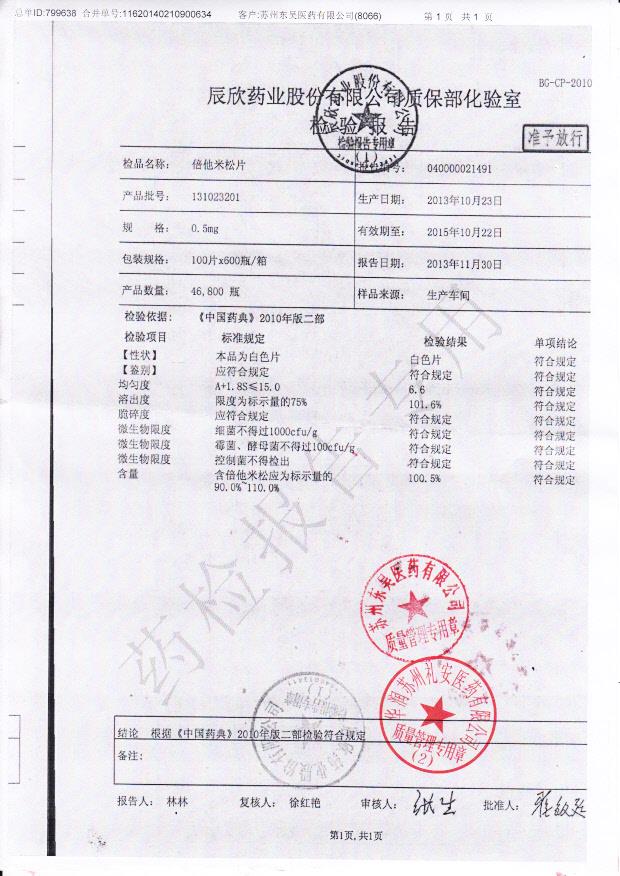 总单ID:799638 合并单号:11620140210900634 客户:苏州东吴医药有限公司(8066) 第 1 页 共 1 页
BG-CP-2010
辰欣药业股份有限公司质保部化验室
检验报告
准予放行
辰欣药业股份有限公司
检验报告专用章
(1)
检品名称： 倍他米松片 040000021491
产品批号： 131023201 生产日期： 2013年10月23日
规 格： 0.5mg 有效期至： 2015年10月22日
包装规格： 100片x600瓶/箱 报告日期： 2013年11月30日
产品数量： 46,800 瓶 样品来源： 生产车间
检验依据： 《中国药典》2010年版二部
检验项目 标准规定 检验结果 单项结论
【性状】 本品为白色片 白色片 符合规定
【鉴别】 应符合规定 符合规定 符合规定
均匀度 A+1.8S≤15.0 6.6 符合规定
溶出度 限度为标示量的75% 101.6% 符合规定
脆碎度 应符合规定 符合规定 符合规定
微生物限度 细菌不得过1000cfu/g 符合规定 符合规定
微生物限度 霉菌、酵母菌不得过100cfu/g 符合规定 符合规定
微生物限度 控制菌不得检出 符合规定 符合规定
含量 含倍他米松应为标示量的 100.5% 符合规定
90.0%~110.0%
药检报告专用
苏州东吴医药有限公司
质量管理专用章
华润苏州礼安医药有限公司
质量管理专用章
(2)
辰欣药业股份有限公司
检验报告专用章
(1)
结论 根据《中国药典》2010年版二部检验符合规定
备注：
报告人： 林林 复核人： 徐红艳 审核人： 批准人：
第1页,共1页